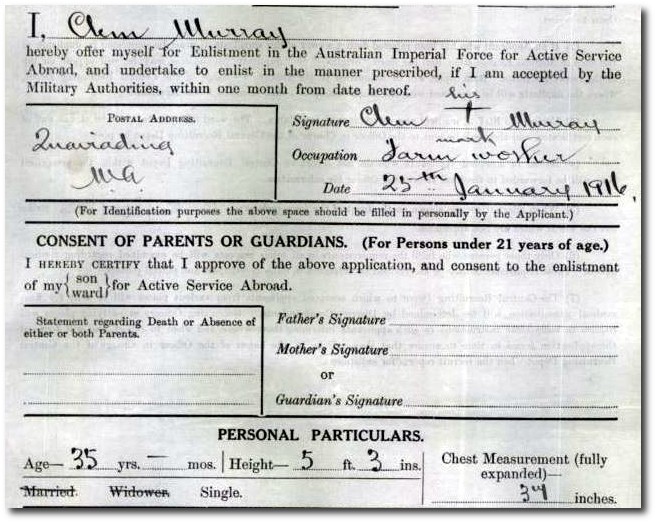 I, Clem Murray
hereby offer myself for Enlistment in the Australian Imperial Force for Active Service
Abroad, and undertake to enlist in the manner prescribed, if I am accepted by the
Military Authorities, within one month from date hereof.
POSTAL ADDRESS.
Quairading
W.A
his
Signature Clem + Murray
mark
Occupation Farm worker
Date 25th January 1916.
(For Identification purposes the above space should be filled in personally by the Applicant.)
CONSENT OF PARENTS OR GUARDIANS. (For Persons under 21 years of age.)
I HEREBY CERTIFY that I approve of the above application, and consent to the enlistment
of my { son ward } for Active Service Abroad.
Statement regarding Death or Absence of
either or both Parents.
Father's Signature
Mother's Signature
or
Guardian's Signature
PERSONAL PARTICULARS.
Age— 35 yrs. — mos. Height— 5 ft. 3 ins.
Married. Widower. Single.
Chest Measurement (fully
expanded)—
inches.